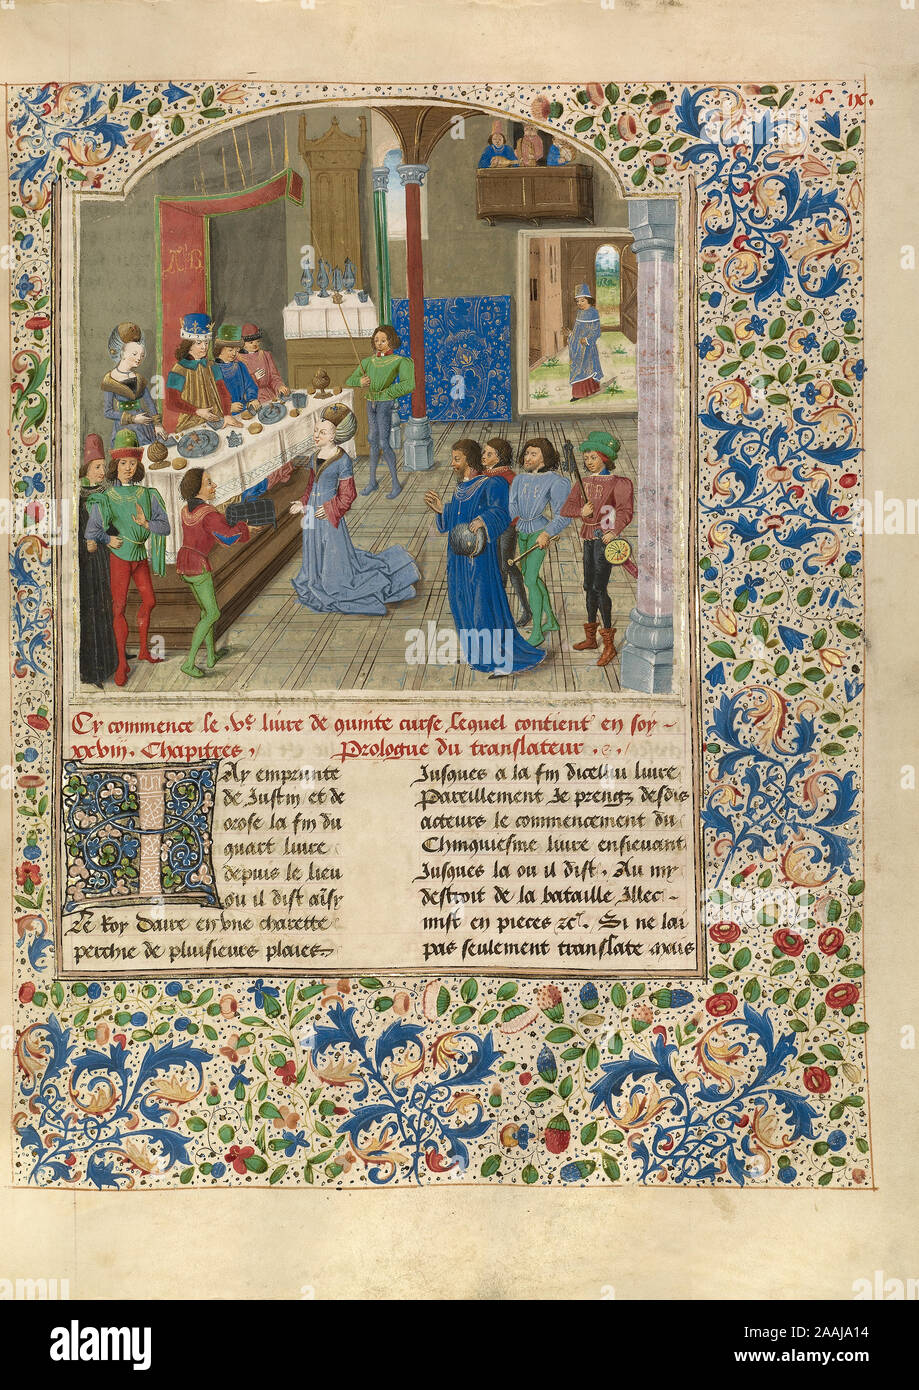 Cy commence le .Ve. liure de quinte curse, lequel contient en soy
xxviii. Chapitres. Prologue du translateur.
Ay emprunte
de Justin et de
orose la fin du
quart liure
depuis le lieu
ou il dist aisy
Le Roy daire en vne charette
perchie de pluisieurs plaies
Jusques a la fin dicellui liure
Pareillement Je prengz desdis
acteurs le commencement du
Chinquiesme liure ensieuant
Jusques la ou il dist. Au my
destroit de la bataille Illec
mist en pieces zc. Si ne lai
pas seulement translate mais
alamy
Image ID: 2AAJA14
www.alamy.com